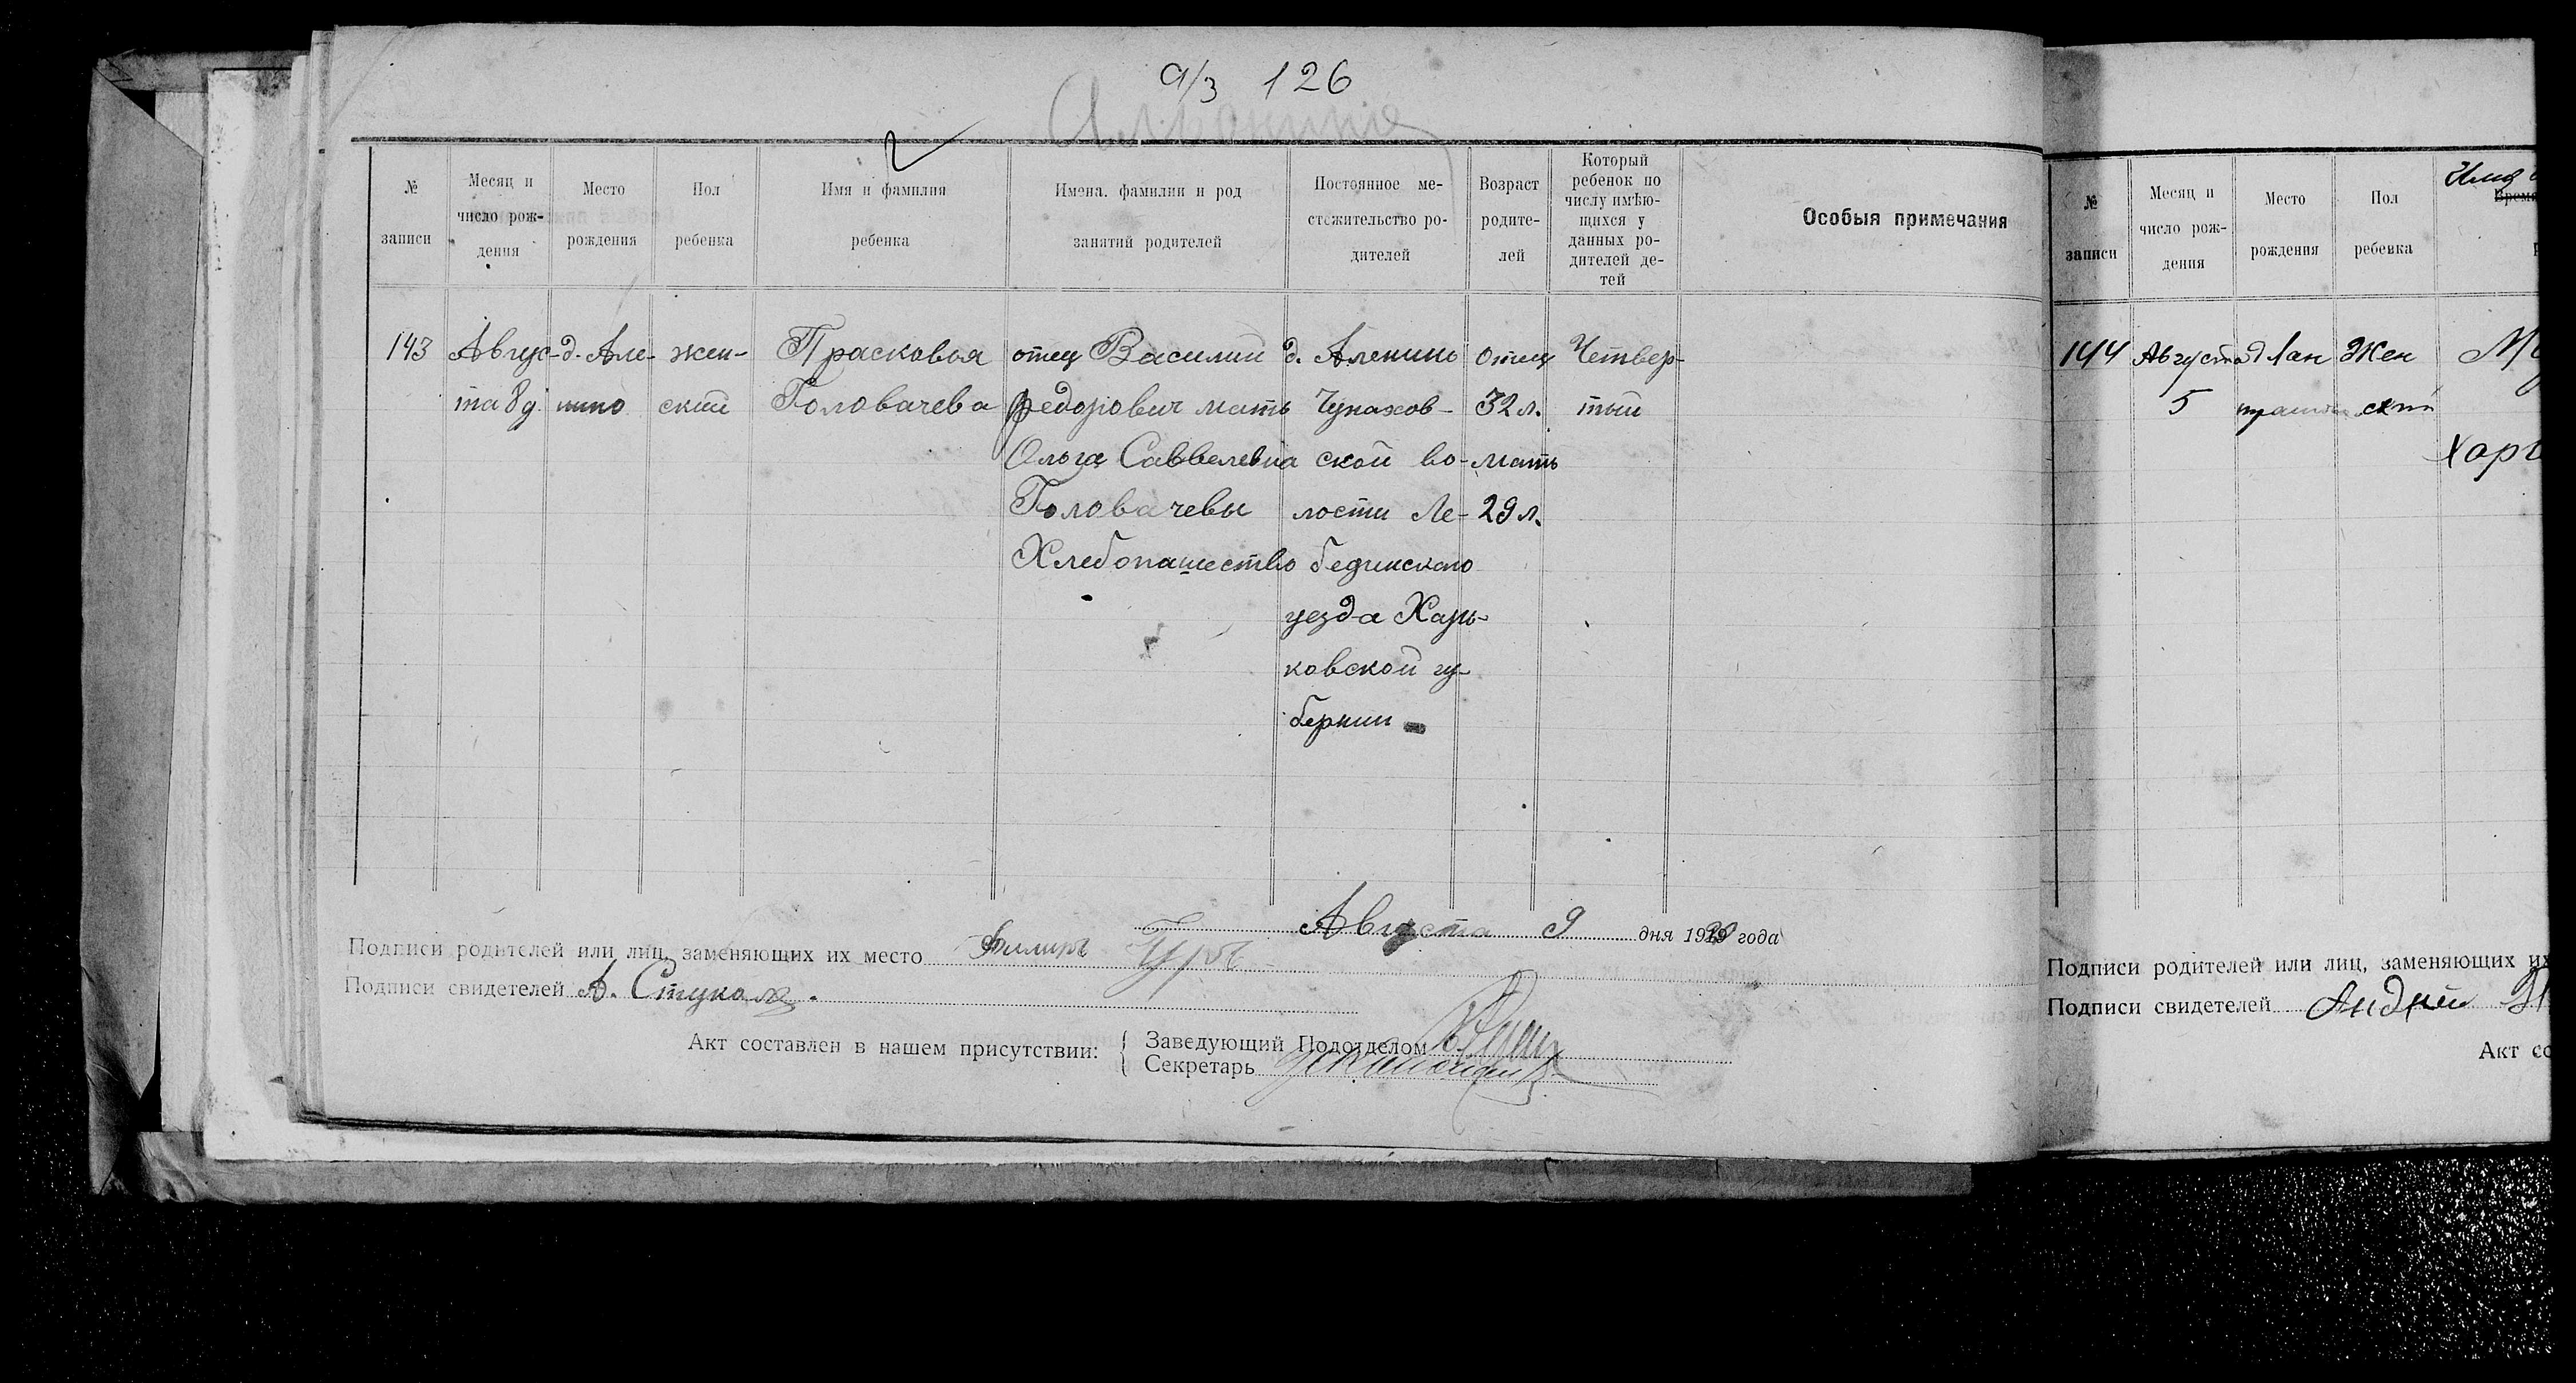 а/з 126
№ записи
Месяц и число рождения
Место рождения
Пол ребенка
Имя и фамилия ребенка
Имена, фамилии и род занятий родителей
Постоянное местожительство родителей
Возраст родителей
Который ребенок по числу имѣющихся у данных родителей детей
Особыя примечания
143
Авгус-
та 8 д.
д. Але-
нино
жен-
ский
Прасковья
Головачева
отец Василий
Федорович мать
Ольга Саввелевна
Головачевы
Хлебопашество
д. Аленино
Чупахов-
ской во-
лости Ле-
бединского
уезда Харь-
ковской гу-
бернии
отец
32 л.
мать
29 л.
Четвер-
тый
Августа 9 дня 1920 года
Подписи родителей или лиц, заменяющих их место
Подписи свидетелей А. Стукало.
Акт составлен в нашем присутствии:
Заведующий Подотделом
Секретарь
№ записи
Месяц и число рождения
Место рождения
Пол ребенка
144
Августа
5
Жен
ский
Подписи родителей или лиц, заменяющих их
Подписи свидетелей Андрей
Акт со